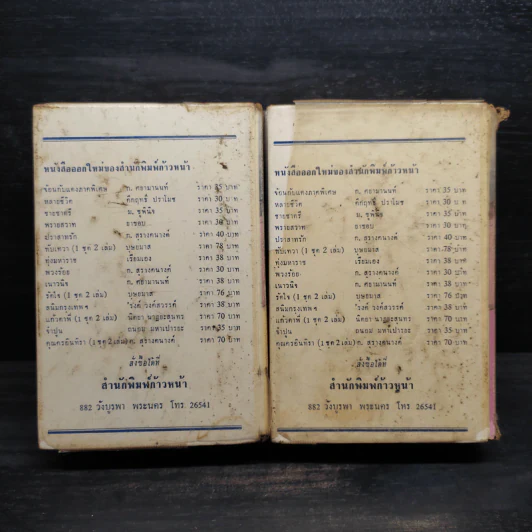 หนังสือออกใหม่ของสำนักพิมพ์ก้าวหน้า
ข้อนกับแดงภาคพิเศษ ก. ศยามานนท์ ราคา 35 บาท
หลายชีวิต คึกฤทธิ์ ปราโมช ราคา 30 บาท
ชายชาตรี ม. ชูพินิจ ราคา 35 บาท
พรายสวาท อาชอบ ราคา 30 บาท
ปราสาทรัก ก. สุรางคนางค์ ราคา 40 บาท
ทับเทวา (1 ชุด 2 เล่ม) บุษยมาส ราคา 78 บาท
ทุ่งมหาราช เรียมเอง ราคา 38 บาท
พวงร้อย ก. สุรางคนางค์ ราคา 30 บาท
เนาวนิจ ก. ศยามานนท์ ราคา 38 บาท
รัตใจ (1 ชุด 2 เล่ม) บุษยมาส ราคา 76 บาท
สนิมกรุงเทพฯ 'รงค์ วงค์สวรรค์ ราคา 38 บาท
แก้วตาพี่ (1 ชุด 2 เล่ม) นิตยา นาฏยะสุนทร ราคา 70 บาท
จำปูน ถนอม มหาเปารยะ ราคา 35 บาท
คุณครูอินทิรา (1 ชุด 2 เล่ม) ก. สุรางคนางค์ ราคา 70 บาท
สั่งซื้อได้ที่
สำนักพิมพ์ก้าวหน้า
882 วังบูรพา พระนคร โทร 26541
หนังสือออกใหม่ของสำนักพิมพ์ก้าวหน้า
ข้อนกับแดงภาคพิเศษ ก. ศยามานนท์ ราคา 35 บาท
หลายชีวิต คึกฤทธิ์ ปราโมช ราคา 30 บาท
ชายชาตรี ม. ชูพินิจ ราคา 35 บาท
พรายสวาท ยาขอบ ราคา 30 บาท
ปราสาทรัก ก. สุรางคนางค์ ราคา 40 บาท
ทับเทวา (1 ชุด 2 เล่ม) บุษยมาส ราคา 78 บาท
ทุ่งมหาราช เรียมเอง ราคา 38 บาท
พวงร้อย ก. สุรางคนางค์ ราคา 30 บาท
เนาวนิจ ก. ศยามานนท์ ราคา 38 บาท
รัตใจ (1 ชุด 2 เล่ม) บุษยมาส ราคา 76 บาท
สนิมกรุงเทพฯ 'รงค์ วงค์สวรรค์ ราคา 38 บาท
แก้วตาพี่ (1 ชุด 2 เล่ม) นิตยา นาฏยะสุนทร ราคา 70 บาท
จำปูน ถนอม มหาเปารยะ ราคา 35 บาท
คุณครูอินทิรา (1 ชุด 2 เล่ม) ก. สุรางคนางค์ ราคา 70 บาท
สั่งซื้อได้ที่
สำนักพิมพ์ก้าวหน้า
882 วังบูรพา พระนคร โทร 26541